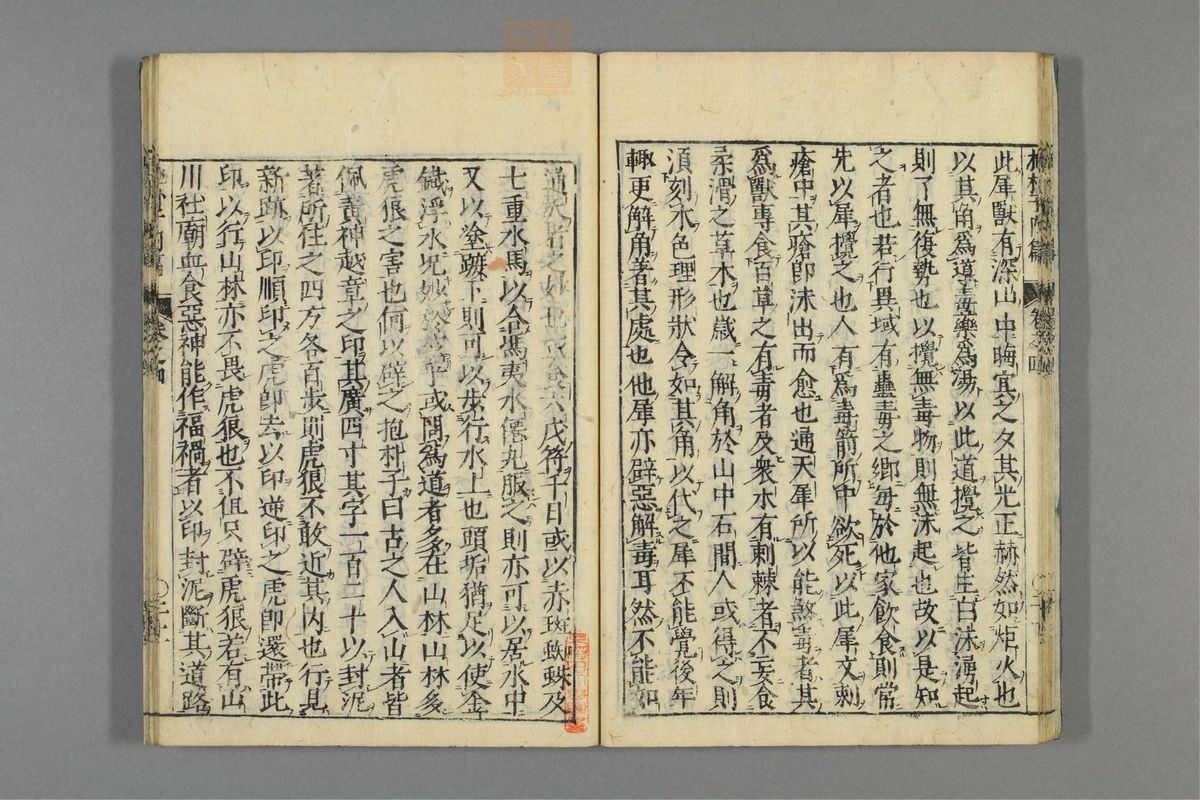 此犀獸有深山中晦冥之夕其光正赫然如炬火也
以其角爲導毒藥爲湯以此道攪之皆生白沫湧起
則了無復勢也以攪無毒物則無沫起也故以是知
之者也若行異域有蠱毒之鄉毎於他家飲食則常
先以犀攪之也人有爲毒箭所中欲死以此犀文刺
瘡中其瘡即沫出而愈也通天犀所以能煞毒者其
爲獸專食百草之有毒者及衆木有刺棘者不妄食
柔滑之草木也歲一解角於山中石間人或得之則
須刻木色理形狀令如其角以代之犀不能覺後年
輙更解角著其處也他犀亦辟惡解毒耳然不能如
通天者之妙也或食六戊符千日或以赤斑蜘蛛及
七重水馬以合馮夷水僊丸服之則亦可以居水中
又以塗蹠下則可以步行水上也頭垢猶足以使金
鐵浮水况妙於茲乎或問爲道者多在山林山林多
虎狼之害也何以辟之抱朴子曰古之人入山者皆
佩黃神越章之印其廣四寸其字一百二十以封泥
著所住之四方各百步則虎狼不敢近其内也行見
新跡以印順印之虎即去以印逆印之虎即還帶此
印以行山林亦不畏虎狼也不但只辟虎狼若有山
川社廟血食惡神能作福禍者以印封泥斷其道路